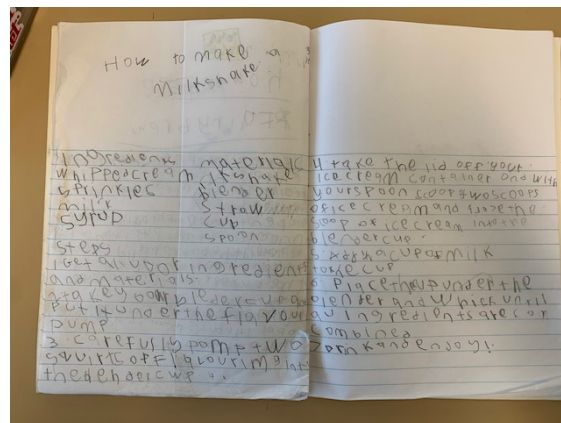 How to make a
milkshake
Ingredients materials
whippedcream milkshake
sprinkles blender
milk straw
syrup cup
spoon
Steps
1 Get all your ingredients
and materials.
2 take your blender cup and
put it under the flavour
pump
3. carefully pomp two
squirts of flavouring into
the blender cup.
4 take the lid off your
icecream container and with
your spoon scoop two scoops
of icecream and the
scoop of icecream into the
blender cup.
5 Add a cup of milk
to the cup
6 Place the cup under the
blender and until
all ingredients are
combined
7 Drink and enjoy!